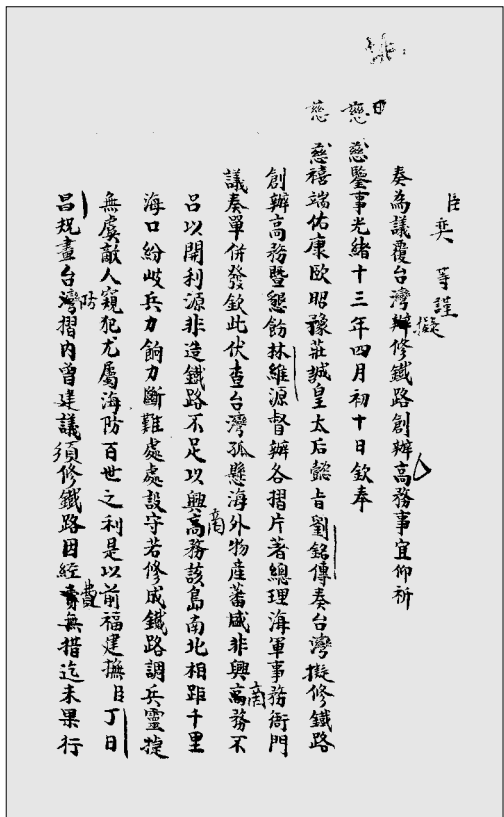 臣奕等謹
擬
奏為議覆台灣辦修鐵路創辦高務事宜仰祈
慈鑒事光緒十三年四月初十日欽奉
慈禧端佑康頤昭豫莊誠皇太后懿旨劉銘傳奏台灣擬修鐵路
慈
創辦高務暨懇飭林維源督辦各摺片著總理海軍事務衙門
議奏單併發欽此伏查台灣孤懸海外物產蕃盛非興高務不
商
足以開利源非造鐵路不足以興高務該島南北相距千里
商
海口紛岐兵力餉力斷難處處設守若修成鐵路調兵靈捷
無虞敵人窺犯尤屬海防百世之利是以前福建撫臣丁日
費
防
昌規畫台灣摺內曾建議須修鐵路因經費無措迄未果行